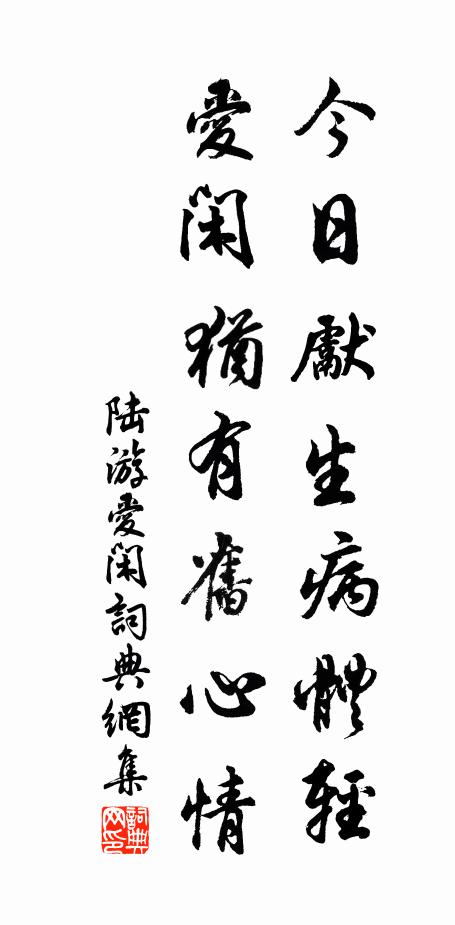 今日獻生病體輕
愛閑猶有舊心情
陆游愛閑詞典網集
詞典网印